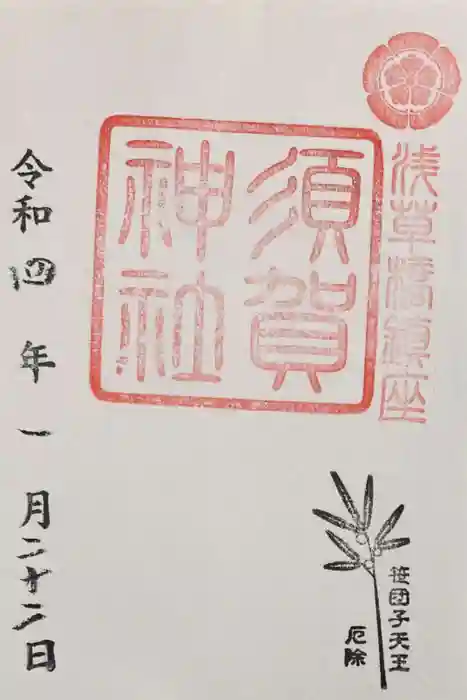 浅草橋鎮座
須賀
神社
笹団子天王
厄除
令和四年一月二十二日